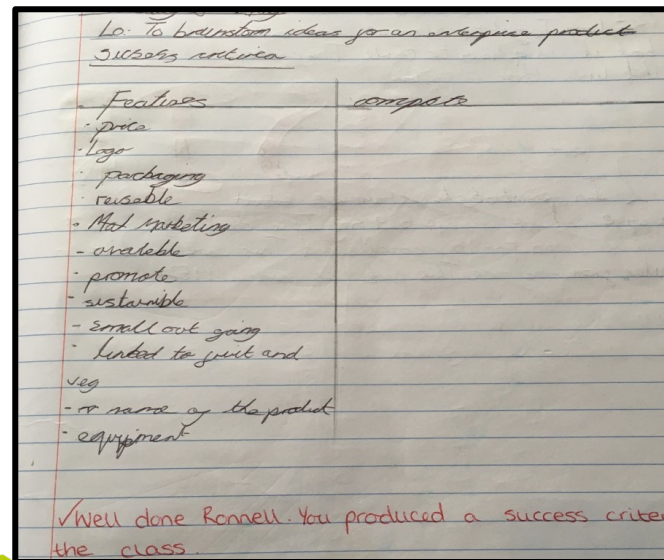 Lo: To brainstorm ideas for an enterprise product
Sucsess criteria
Features
compete
- price
- Logo
- packaging
- reusable
- Marketing
- avaleble
- promote
- sustainible
- small out going
- linked to fruit and
veg
- name of the product
- equipment
✓Well done Ronnell. You produced a success criter
the class.